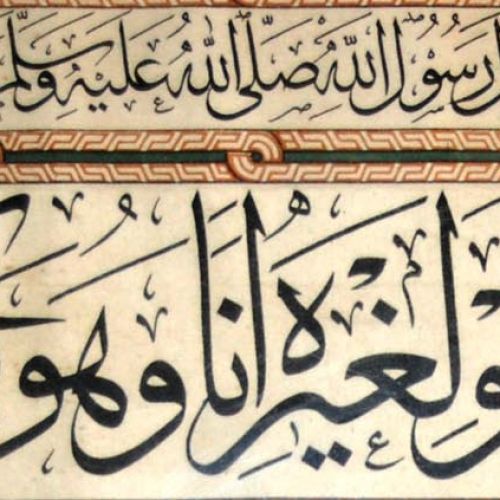 رَسُولُ اللّٰهِ صَلَّى اللّٰهُ عَلَيْهِ وَسَلَّمَ
وْ لِغَيْرِهِ اَنَا وَهُوَ